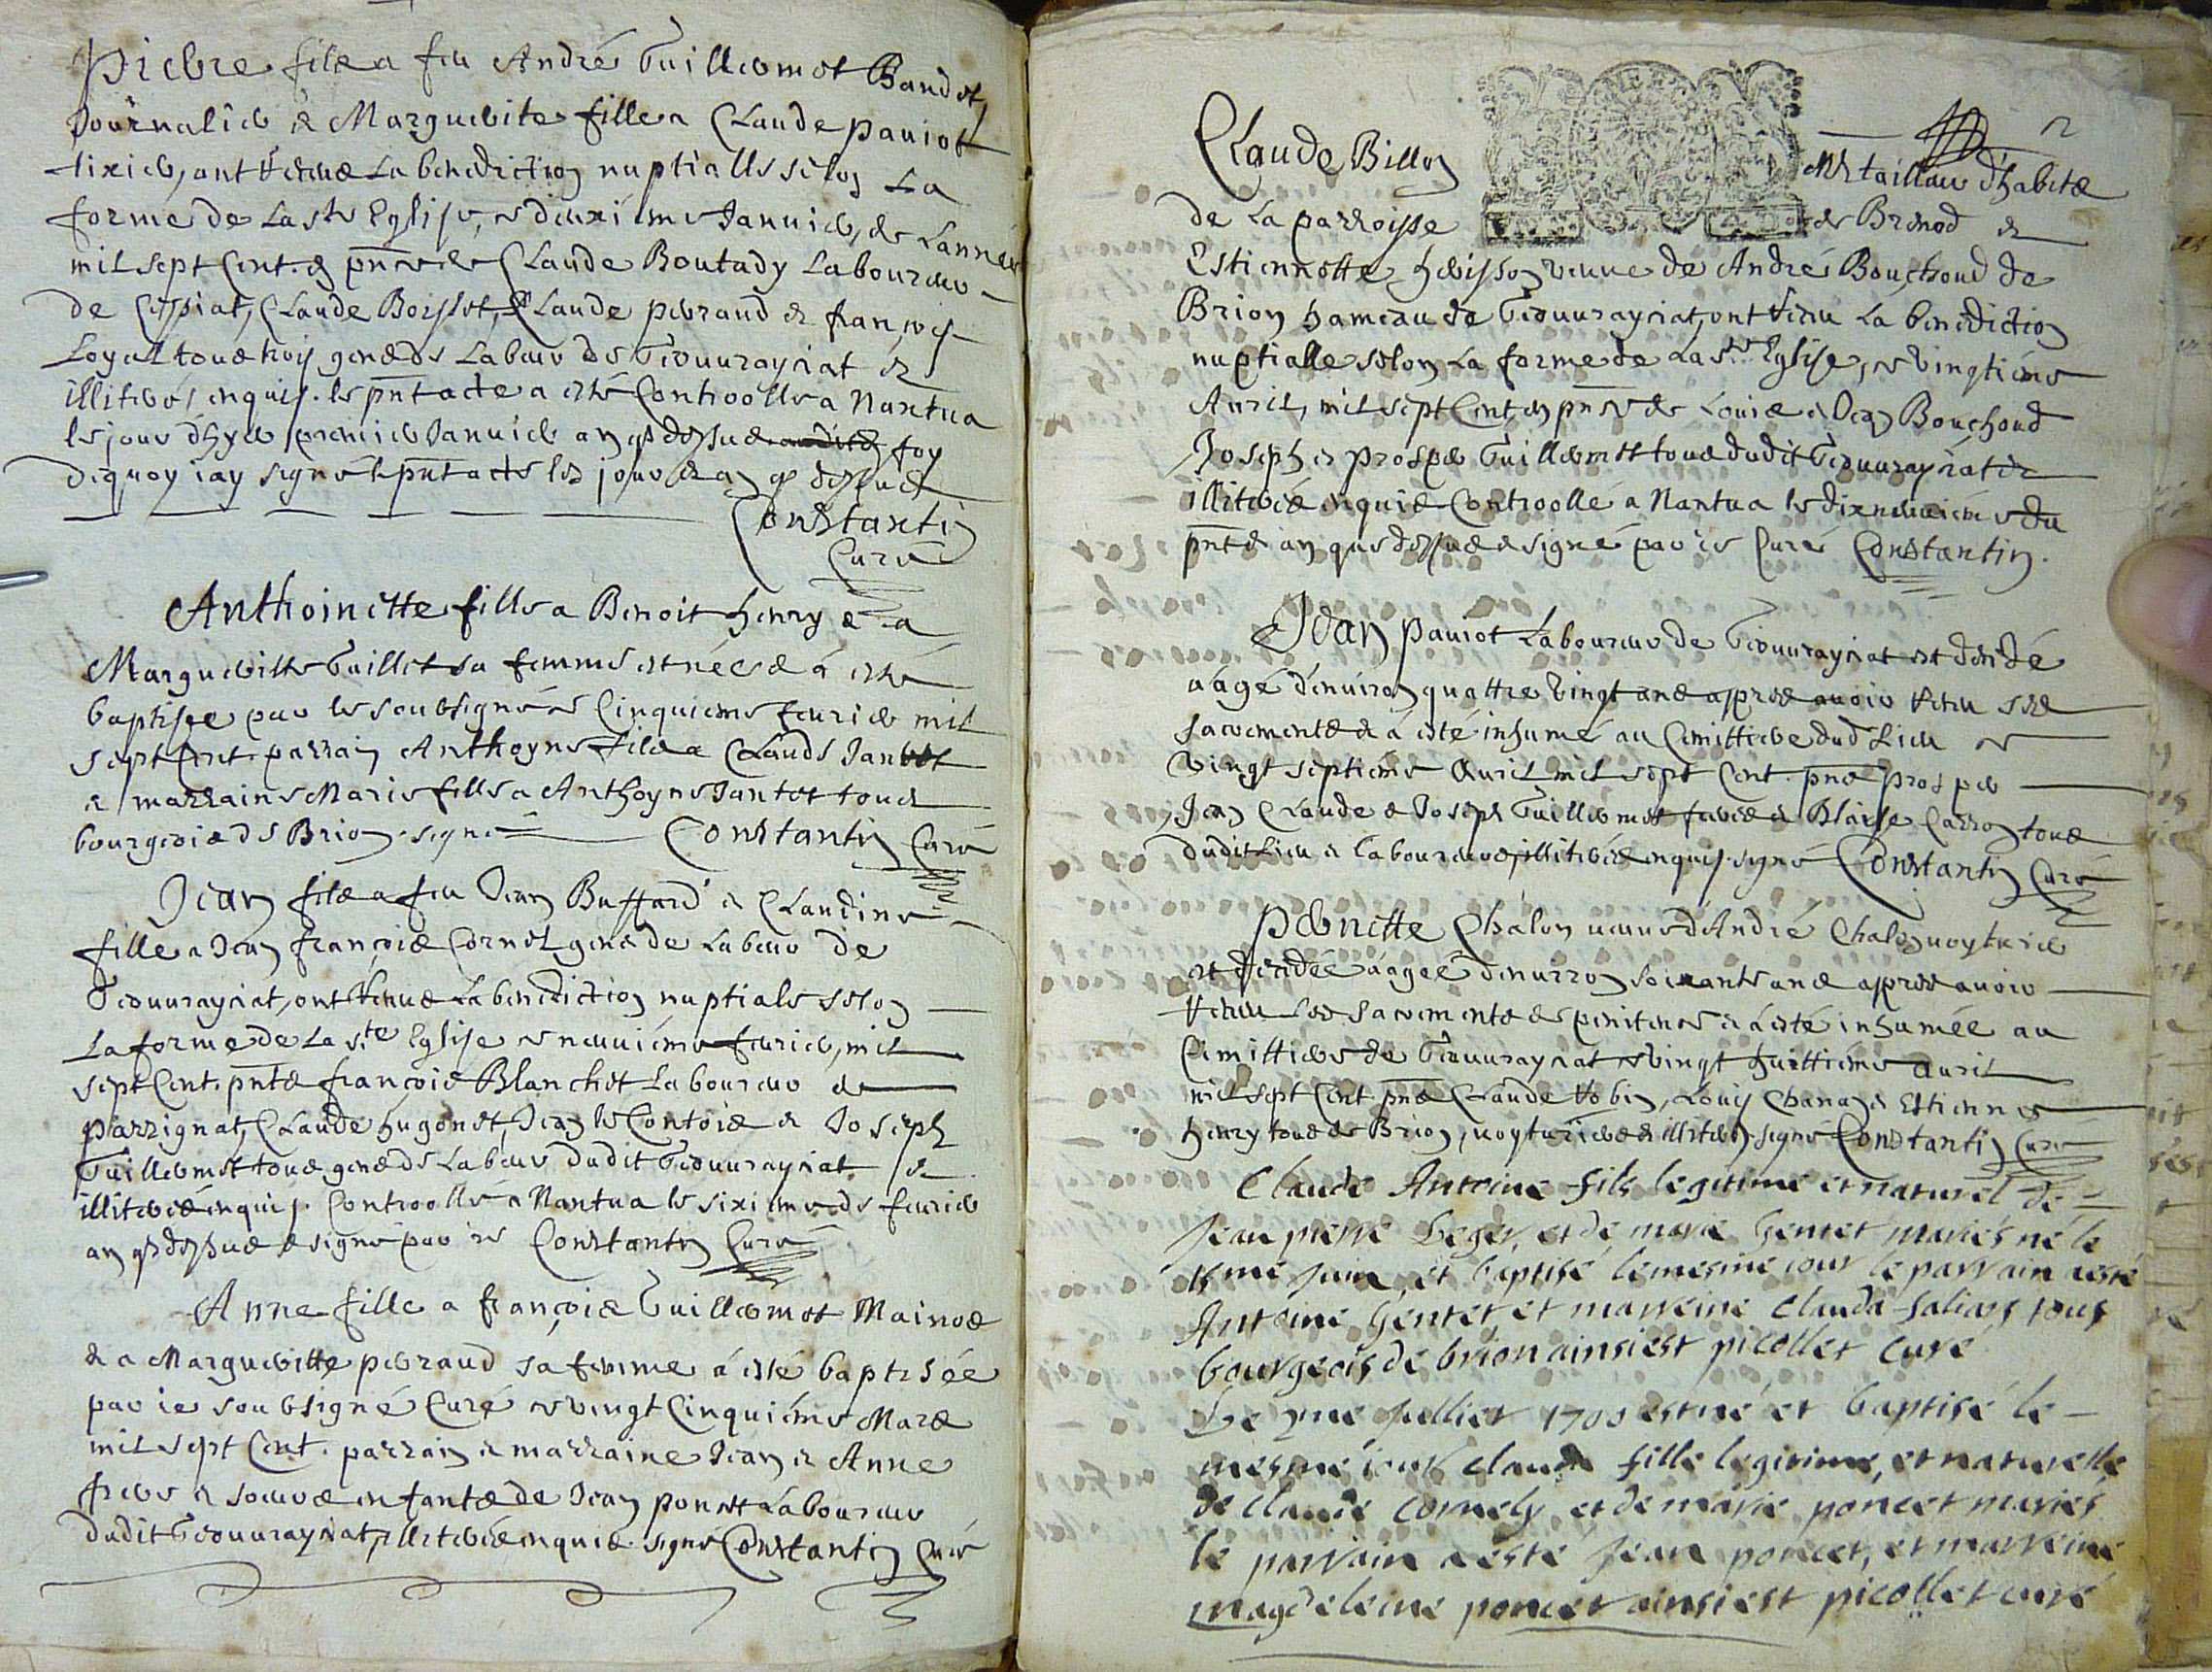 Pierre fils a feu André Guillermot Bandet,
Journalier & Marguerite fille a Claude pauiot
tixier, ont receus La benediction nuptialle selon La
forme de La ste Eglise, ce deuxieme Januier, de Lannée
mil sept Cent. en pnce de Claude Boutady Laboureur
de Ceissiat, Claude Boisset, Claude perraud & françois
Loyal tous trois gens de Labeur de Geouurayssiat &
illiterés enquis. le pnt acte a esté Controolle a Nantua
le jour dhyer premier Januier an q dessus foy
dequoy iay signé le pnt acte les jour & an q dessus
Constantin
Curé
Anthoinette fille a Benoit henry & a
Margueritte Guillet sa femme est née & a esté
baptisee par le soubsigné ce Cinquieme feurier mil
sept Cent. parrain Anthoyne fils a Claude Jantet
& marraine Marie fille a Anthoyne Jantet tous
bourgeois de Brion. signé Constantin Curé
Jean fils a feu Jean Buffard & Claudine
fille a Jean françois Cornet gens de Labeur de
Geouurayssiat, ont receus La benediction nuptiale selon
La forme de La ste Eglise ce neuuiéme feurier, mil
sept Cent. pnts françois Blanchet Laboureur de
parrignat, Claude hugonet, Jean le Contois & Joseph
Guillermet tous gens de Labeur dudit Geouurayssiat. &
illiterés enquis. Controollé a Nantua le sixieme de feurier
an q dessus & signé par ie Constantin Curé
Anne fille a françois Guillermot Mainos
& a Margueritte perraud sa femme à esté baptisée
par ie soubsigné Curé ce vingt Cinquiéme Mars
mil sept Cent. parrain & marraine Jean & Anne
frere & soeur enfants de Jean poncet Laboureur
dudit Geouurayssiat, illiterés enquis. signé Constantin Curé
Claude Billon Me tailleur d'habits
de La parroisse de Brenod &
Estiennette herisson veuue de André Bouchoud de
Brion hameau de Geouurayssiat, ont receu La benediction
nuptialle selon La forme de La ste Eglise, ce vingtiéme
Auril, mil sept Cent, en pnce de Louis & Jean Bouchoud
Joseph & prosper Guillermet tous dudit Geouurayssiat &
illiterés enquis Controollé a Nantua le dixneuuieme du
pnt & an que dessus & signé par ie Curé Constantin.
Jean pauiot Laboureur de Geouurayssiat est decedé
aagé d'enuiron quattre vingt ans apres auoir receu ses
sacrements & à esté inhumé au Cimittiere dud Lieu ce
vingt septiéme Auril mil sept Cent. pns prosper
Jean Claude & Joseph Guillermet freres & Blaise Carron tous
dudit Lieu & Laboureurs illiterés enquis. signé Constantin Curé
Pernette Chalon ueuue d'André Chalon uoyturier
est decedée aagée denuiron soixante ans apres auoir
receu Les sacrements de penitence & à esté inhumée au
Cimittiere de Geouurayssiat ce vingt huittiéme auril
mil sept Cent. pns Claude Robin, Louis Chanan & Estienne
henry tous de Brion, uoyturiers & illiterés. signé Constantin Curé
Claude Antoine fils legitime et naturel de
Jean pierre Leger, et de marie Gentet mariés né le
15 me Juin et baptisé le mesme iour le parrain a esté
Antoine Gentet et marreine Clauda saliars tous
bourgeois de brion ainsi est picollet curé
Le 2me Juelliet 1700 est né et baptisé le
mesme iour clauda fille legitime, et naturelle
de Claude Cornely et de marie poncet mariés
le parrain a esté Jean poncet, et marreine
magdeleine poncet ainsi est picollet curé